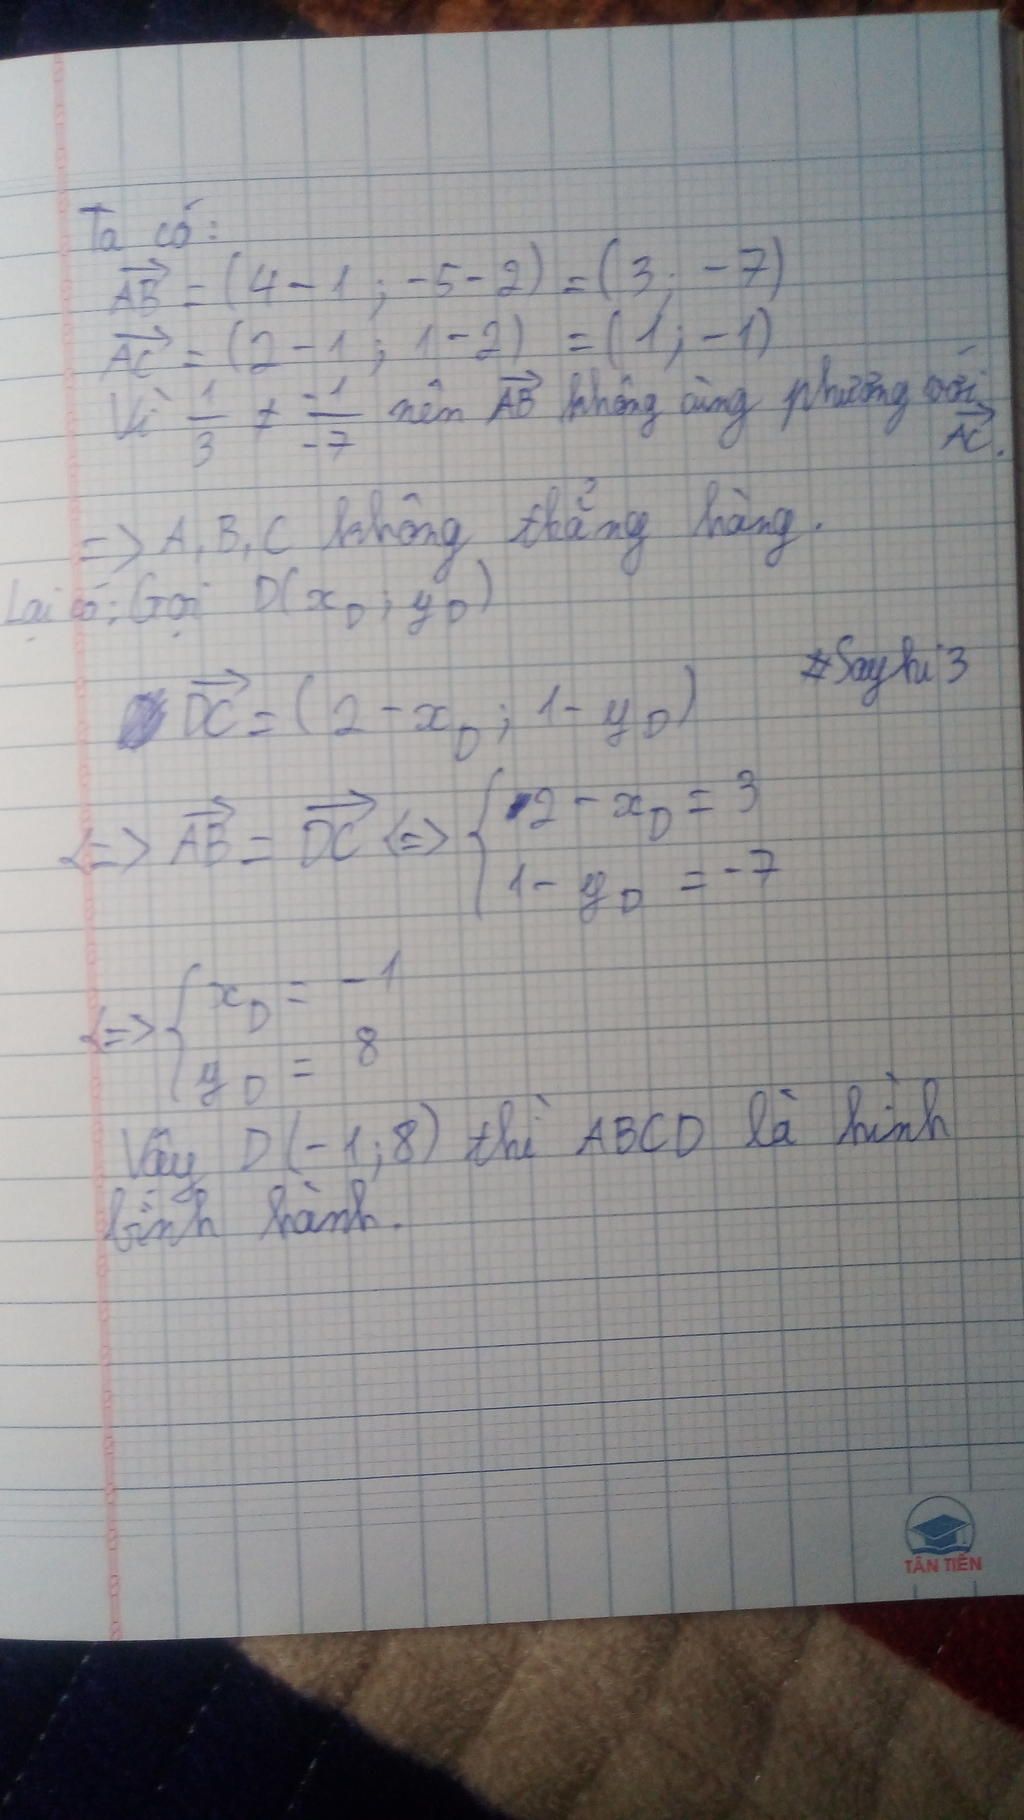 Ta có:
$\overrightarrow{AB}$ = (4-1; -5-2) = (3; -7)
$\overrightarrow{AC}$ = (2-1; 1-2) = (1; -1)
Vì $\frac{1}{3}$ ≠ $\frac{-1}{-7}$ nên $\overrightarrow{AB}$ không cùng phương với $\overrightarrow{AC}$.
=> A, B, C không thẳng hàng.
Lại có: Gọi D(x_D; y_D)
#Sayhi3
$\overrightarrow{DC}$ = (2 - x_D; 1 - y_D)
<=> $\overrightarrow{AB}$ = $\overrightarrow{DC}$ <=> { 2 - x_D = 3
1 - y_D = -7
<=> { x_D = -1
y_D = 8
Vậy D(-1; 8) thì ABCD là hình
bình hành.
TÂN TIẾN